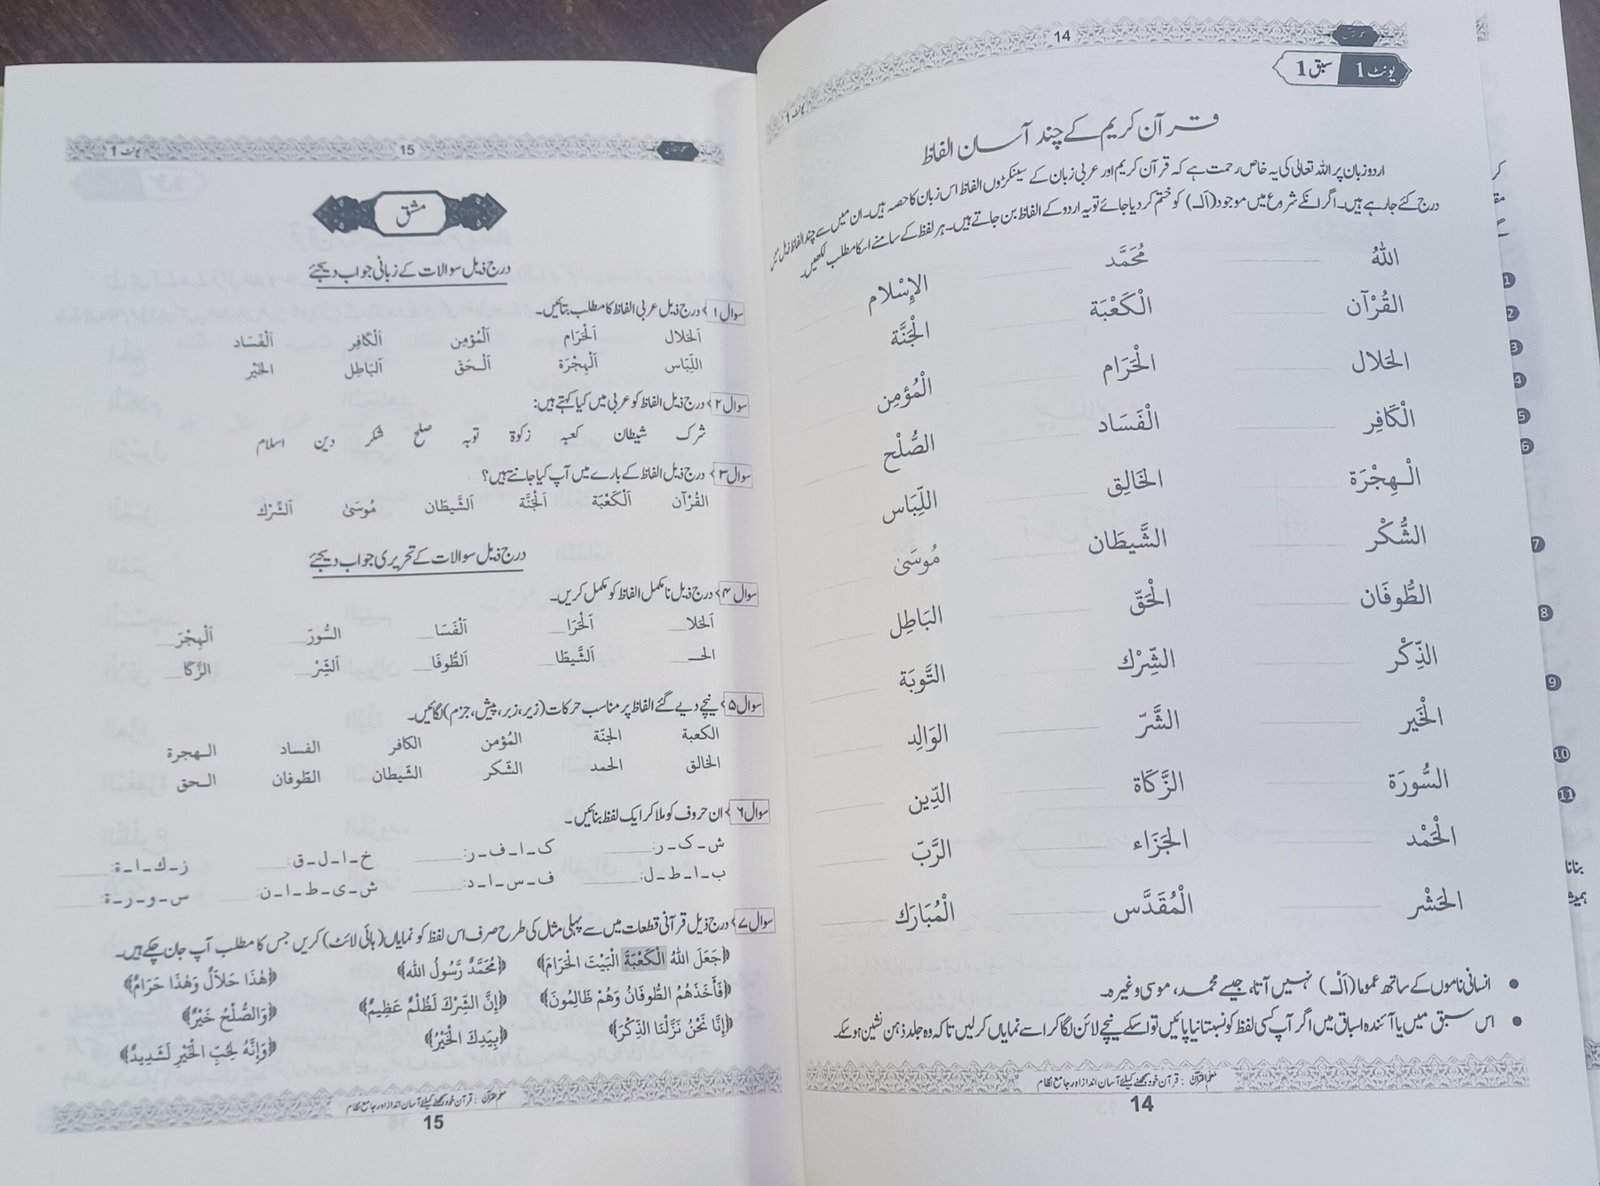 14
یونٹ 1
سبق 1
یونٹ 1
قرآن کریم کے چند آسان الفاظ
اردو زبان پر اللہ تعالی کی یہ خاص رحمت ہے کہ قرآن کریم اور عربی زبان کے سینکڑوں الفاظ اس زبان کا حصہ ہیں۔ ان میں سے چند الفاظ ذیل میں
درج کئے جارہے ہیں۔ اگر انکے شروع میں موجود (اَلـ) کو ختم کر دیا جائے تو یہ اردو کے الفاظ بن جاتے ہیں۔ ہر لفظ کے سامنے اسکا مطلب لکھیں۔
اللهُ مُحَمَّد الإِسْلَام
القُرْآن الْكَعْبَة الْجَنَّة
الحَلال الْحَرَام الْمُؤمِن
الْكَافِر الْفَسَاد الصُّلْح
الْـهِجْرَة الخَالِق اللِّبَاس
الشُّكْر الشَّيطَان مُوسَىٰ
الطُّوفَان الْحَقّ البَاطِل
الذِّكْر الشِّرْك التَّوبَة
الْخَير الشَّرّ الوَالِد
السُّورَة الزَّكَاة الدِّين
الْحَمْد الجَزَاء الرَّبّ
الحَشْر الْمُقَدَّس الْمُبَارَك
• انسانی ناموں کے ساتھ عموما (اَلْـ) نہیں آتا، جیسے محمد، موسی وغیرہ۔
• اس سبق میں یا آئندہ اسباق میں اگر آپ کسی لفظ کو نسبتا نیا پائیں تو اسکے نیچے لائن لگا کر اسے نمایاں کرلیں تاکہ وہ جلد ذہن نشین ہوسکے۔
معلم القرآن : قرآن خود سمجھنے کیلئے آسان انداز اور جامع نظام
14
15
یونٹ 1
مشق
درج ذیل سوالات کے زبانی جواب دیجئے
سوال ۱ درج ذیل عربی الفاظ کا مطلب بتائیں۔
اَلحَلال اَلْحَرَام اَلْمُؤمِن اَلْكَافِر اَلْفَسَاد
اللِّبَاس اَلْهِجْرَة اَلْـحَقّ اَلبَاطِل الخَيْر
سوال ۲ درج ذیل الفاظ کو عربی میں کیا کہتے ہیں:
شرک شیطان کعبہ زکوۃ توبہ صلح شکر دین اسلام
سوال ۳ درج ذیل الفاظ کے بارے میں آپ کیا جانتے ہیں؟
القُرْآن اَلْكَعْبَة اَلْجَنَّة اَلشَّيطَان مُوسَىٰ اَلشِّرْك
درج ذیل سوالات کے تحریری جواب دیجئے
سوال ۴ درج ذیل نامکمل الفاظ کو مکمل کریں۔
اَلحَلا__ اَلْحَرَا__ اَلْفَسَا__ السُّورَ__ اَلْهِجْرَ__
الحَــ__ اَلشَّيطَا__ اَلطُّوفَا__ اَلشِّرْ__ الزَّكَا__
سوال ۵ نیچے دیے گئے الفاظ پر مناسب حرکات (زیر، زبر، پیش، جزم) لگائیں۔
الكعبة الجنّة المُؤمن الكافر الفساد الـهجرة
الخالق الحمد الشّكر الشّيطان الطّوفان الـحق
سوال ۶ ان حروف کو ملا کر ایک لفظ بنائیں۔
ش-ک-ر:____ ک-ا-ف-ر:____ خ-ا-ل-ق:____ ز-ك-ا-ة:____
ب-ا-ط-ل:____ ف-س-ا-د:____ ش-ي-ط-ا-ن:____ س-و-ر-ة:____
سوال ۷ درج ذیل قرآنی قطعات میں سے پہلی مثال کی طرح صرف اس لفظ کو نمایاں (ہائی لائٹ) کریں جس کا مطلب آپ جان چکے ہیں۔
﴿جَعَلَ اللهُ الْكَعْبَةَ الْبَيْتَ الْحَرَامَ﴾ ﴿مُحَمَّدٌ رَّسُولُ اللهِ﴾ ﴿هٰذَا حَلَالٌ وَهٰذَا حَرَامٌ﴾
﴿فَأَخَذَهُمُ الطُّوفَانُ وَهُمْ ظَالِمُونَ﴾ ﴿إِنَّ الشِّرْكَ لَظُلْمٌ عَظِيمٌ﴾ ﴿وَالصُّلْحُ خَيْرٌ﴾
﴿إِنَّا نَحْنُ نَزَّلْنَا الذِّكْرَ﴾ ﴿بِيَدِكَ الْخَيْرُ﴾ ﴿وَإِنَّهُ لِحُبِّ الْخَيْرِ لَشَدِيدٌ﴾
معلم القرآن : قرآن خود سمجھنے کیلئے آسان انداز اور جامع نظام
15